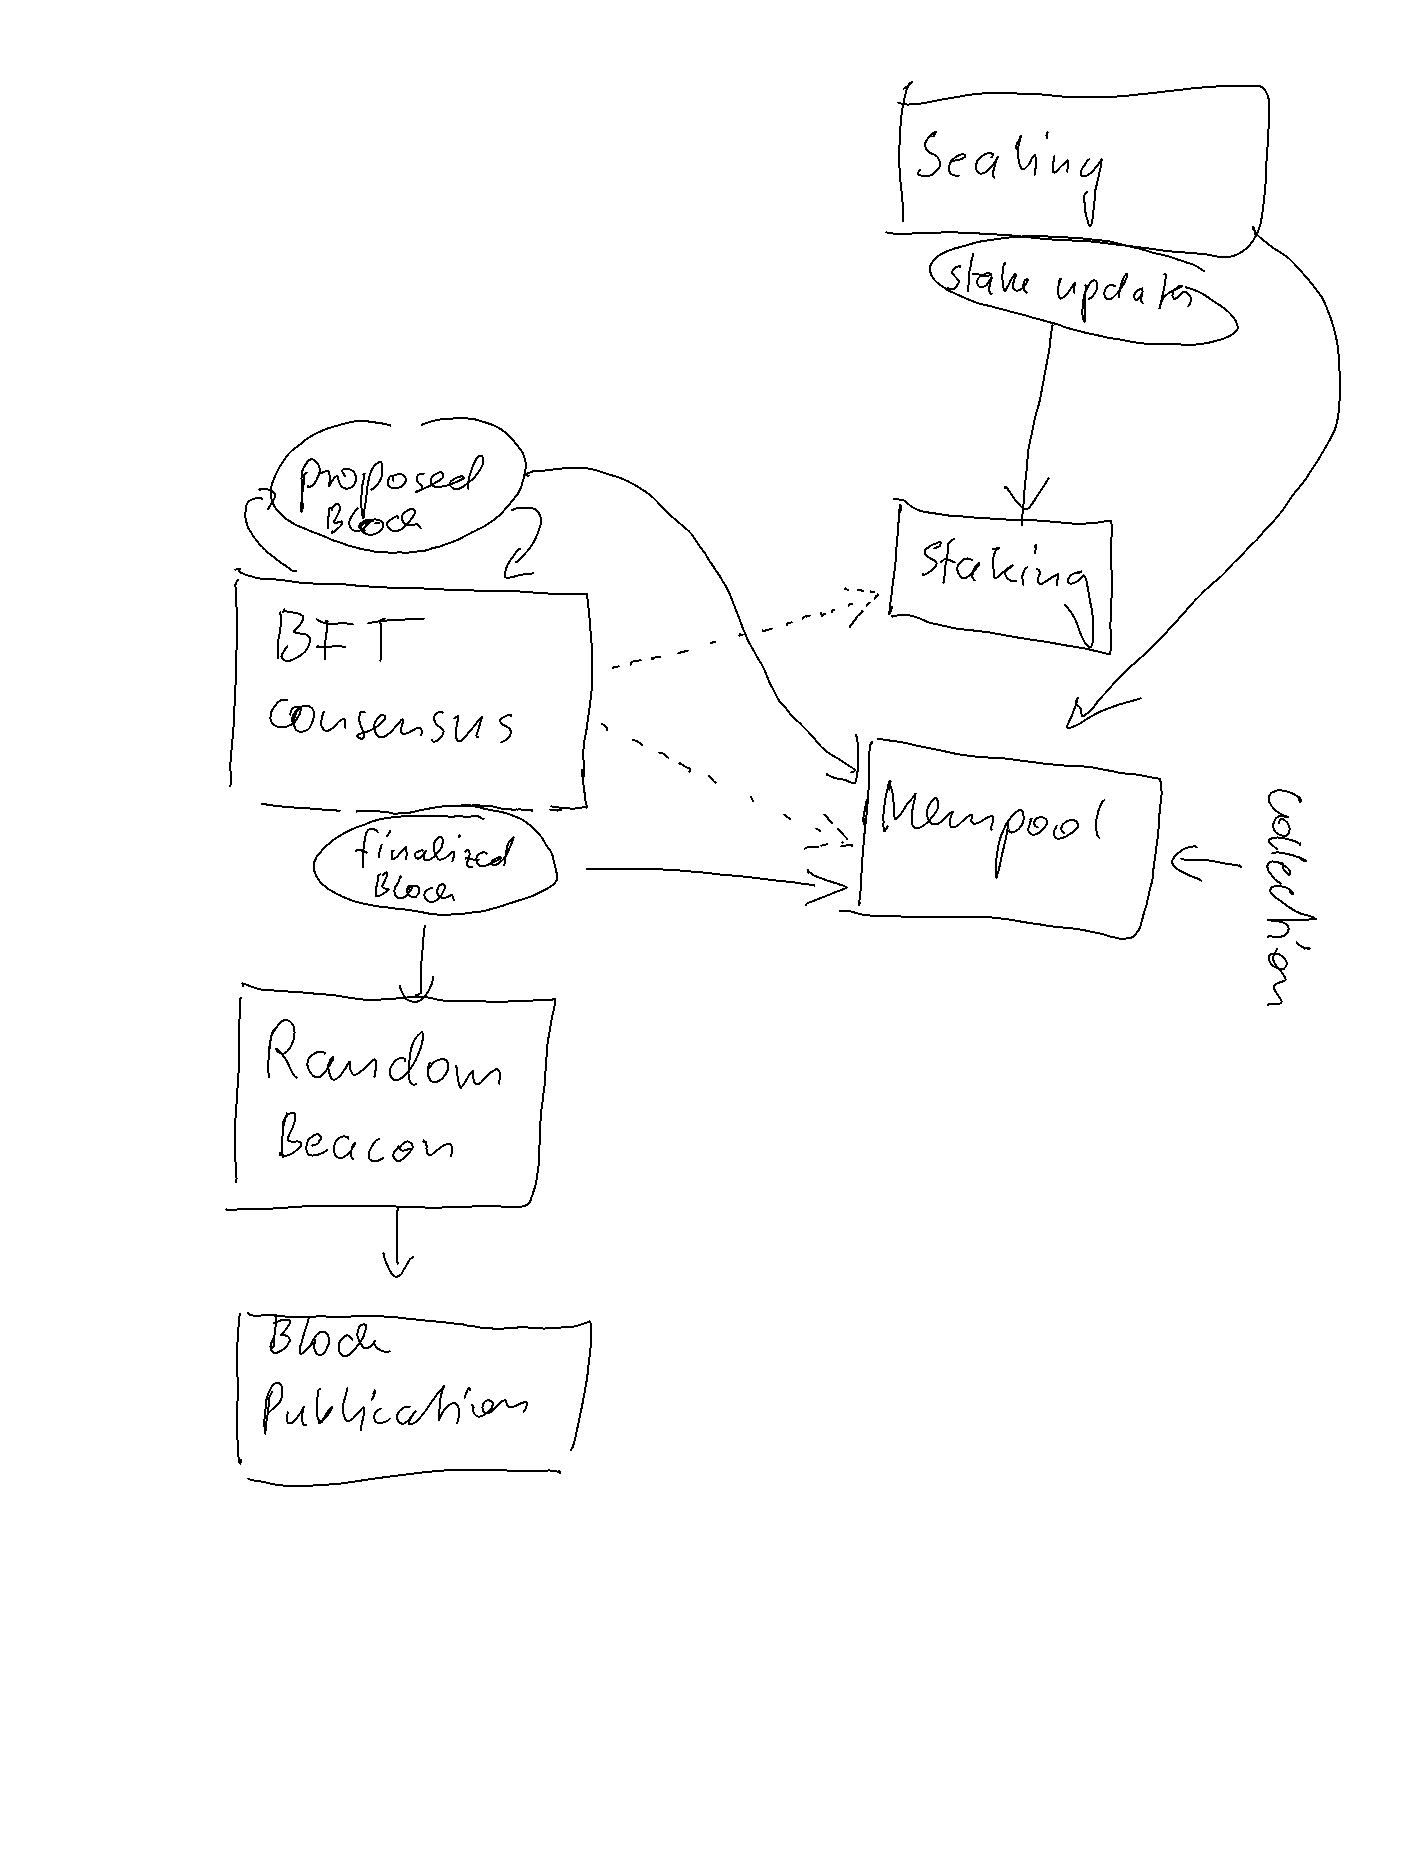 Sealing
stake updates
proposed
Block
Staking
BFT
consensus
Mempool
collection
finalized
Block
Random
Beacon
Block
Publication